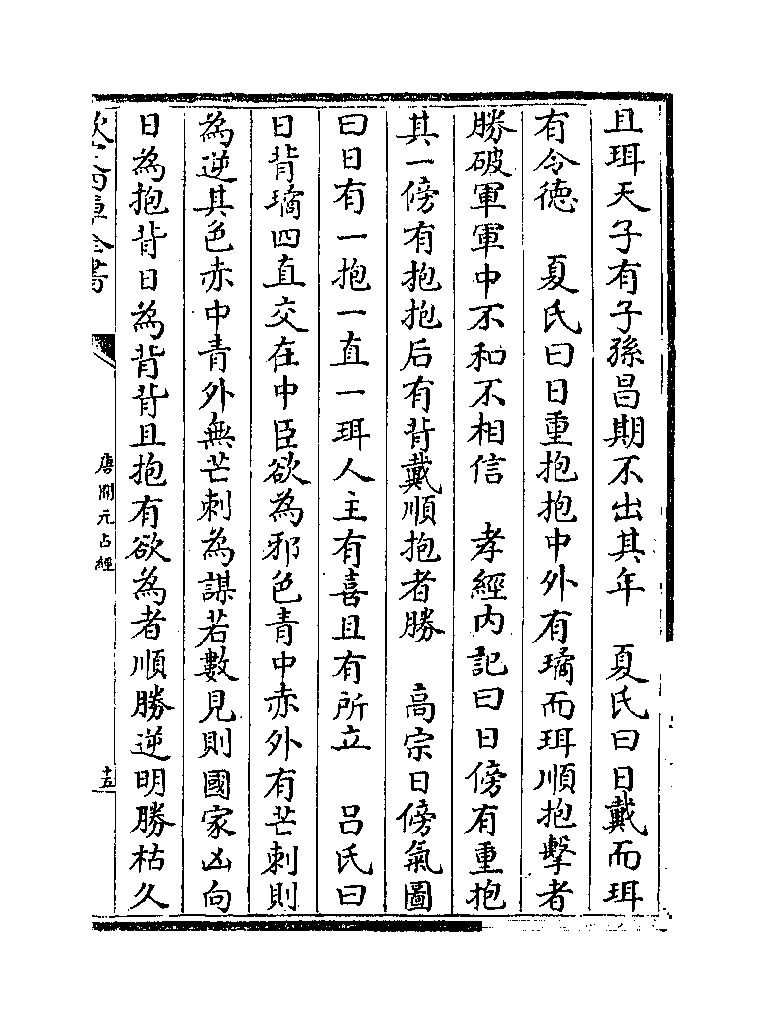 且珥天子有子孫昌期不出其年　夏氏曰日戴而珥
有令德　夏氏曰日重抱抱中外有璚而珥順抱擊者
勝破軍軍中不和不相信　孝經内記曰日傍有重抱
其一傍有抱抱后有背戴順抱者勝　高宗日傍氣圖
曰日有一抱一直一珥人主有喜且有所立　吕氏曰
日背璚四直交在中臣欲為邪色青中赤外有芒刺則
為逆其色赤中青外無芒刺為謀若數見則國家凶向
日為抱背日為背背且抱有欲為者順勝逆明勝枯久
欽定四庫全書
唐開元占經
十五